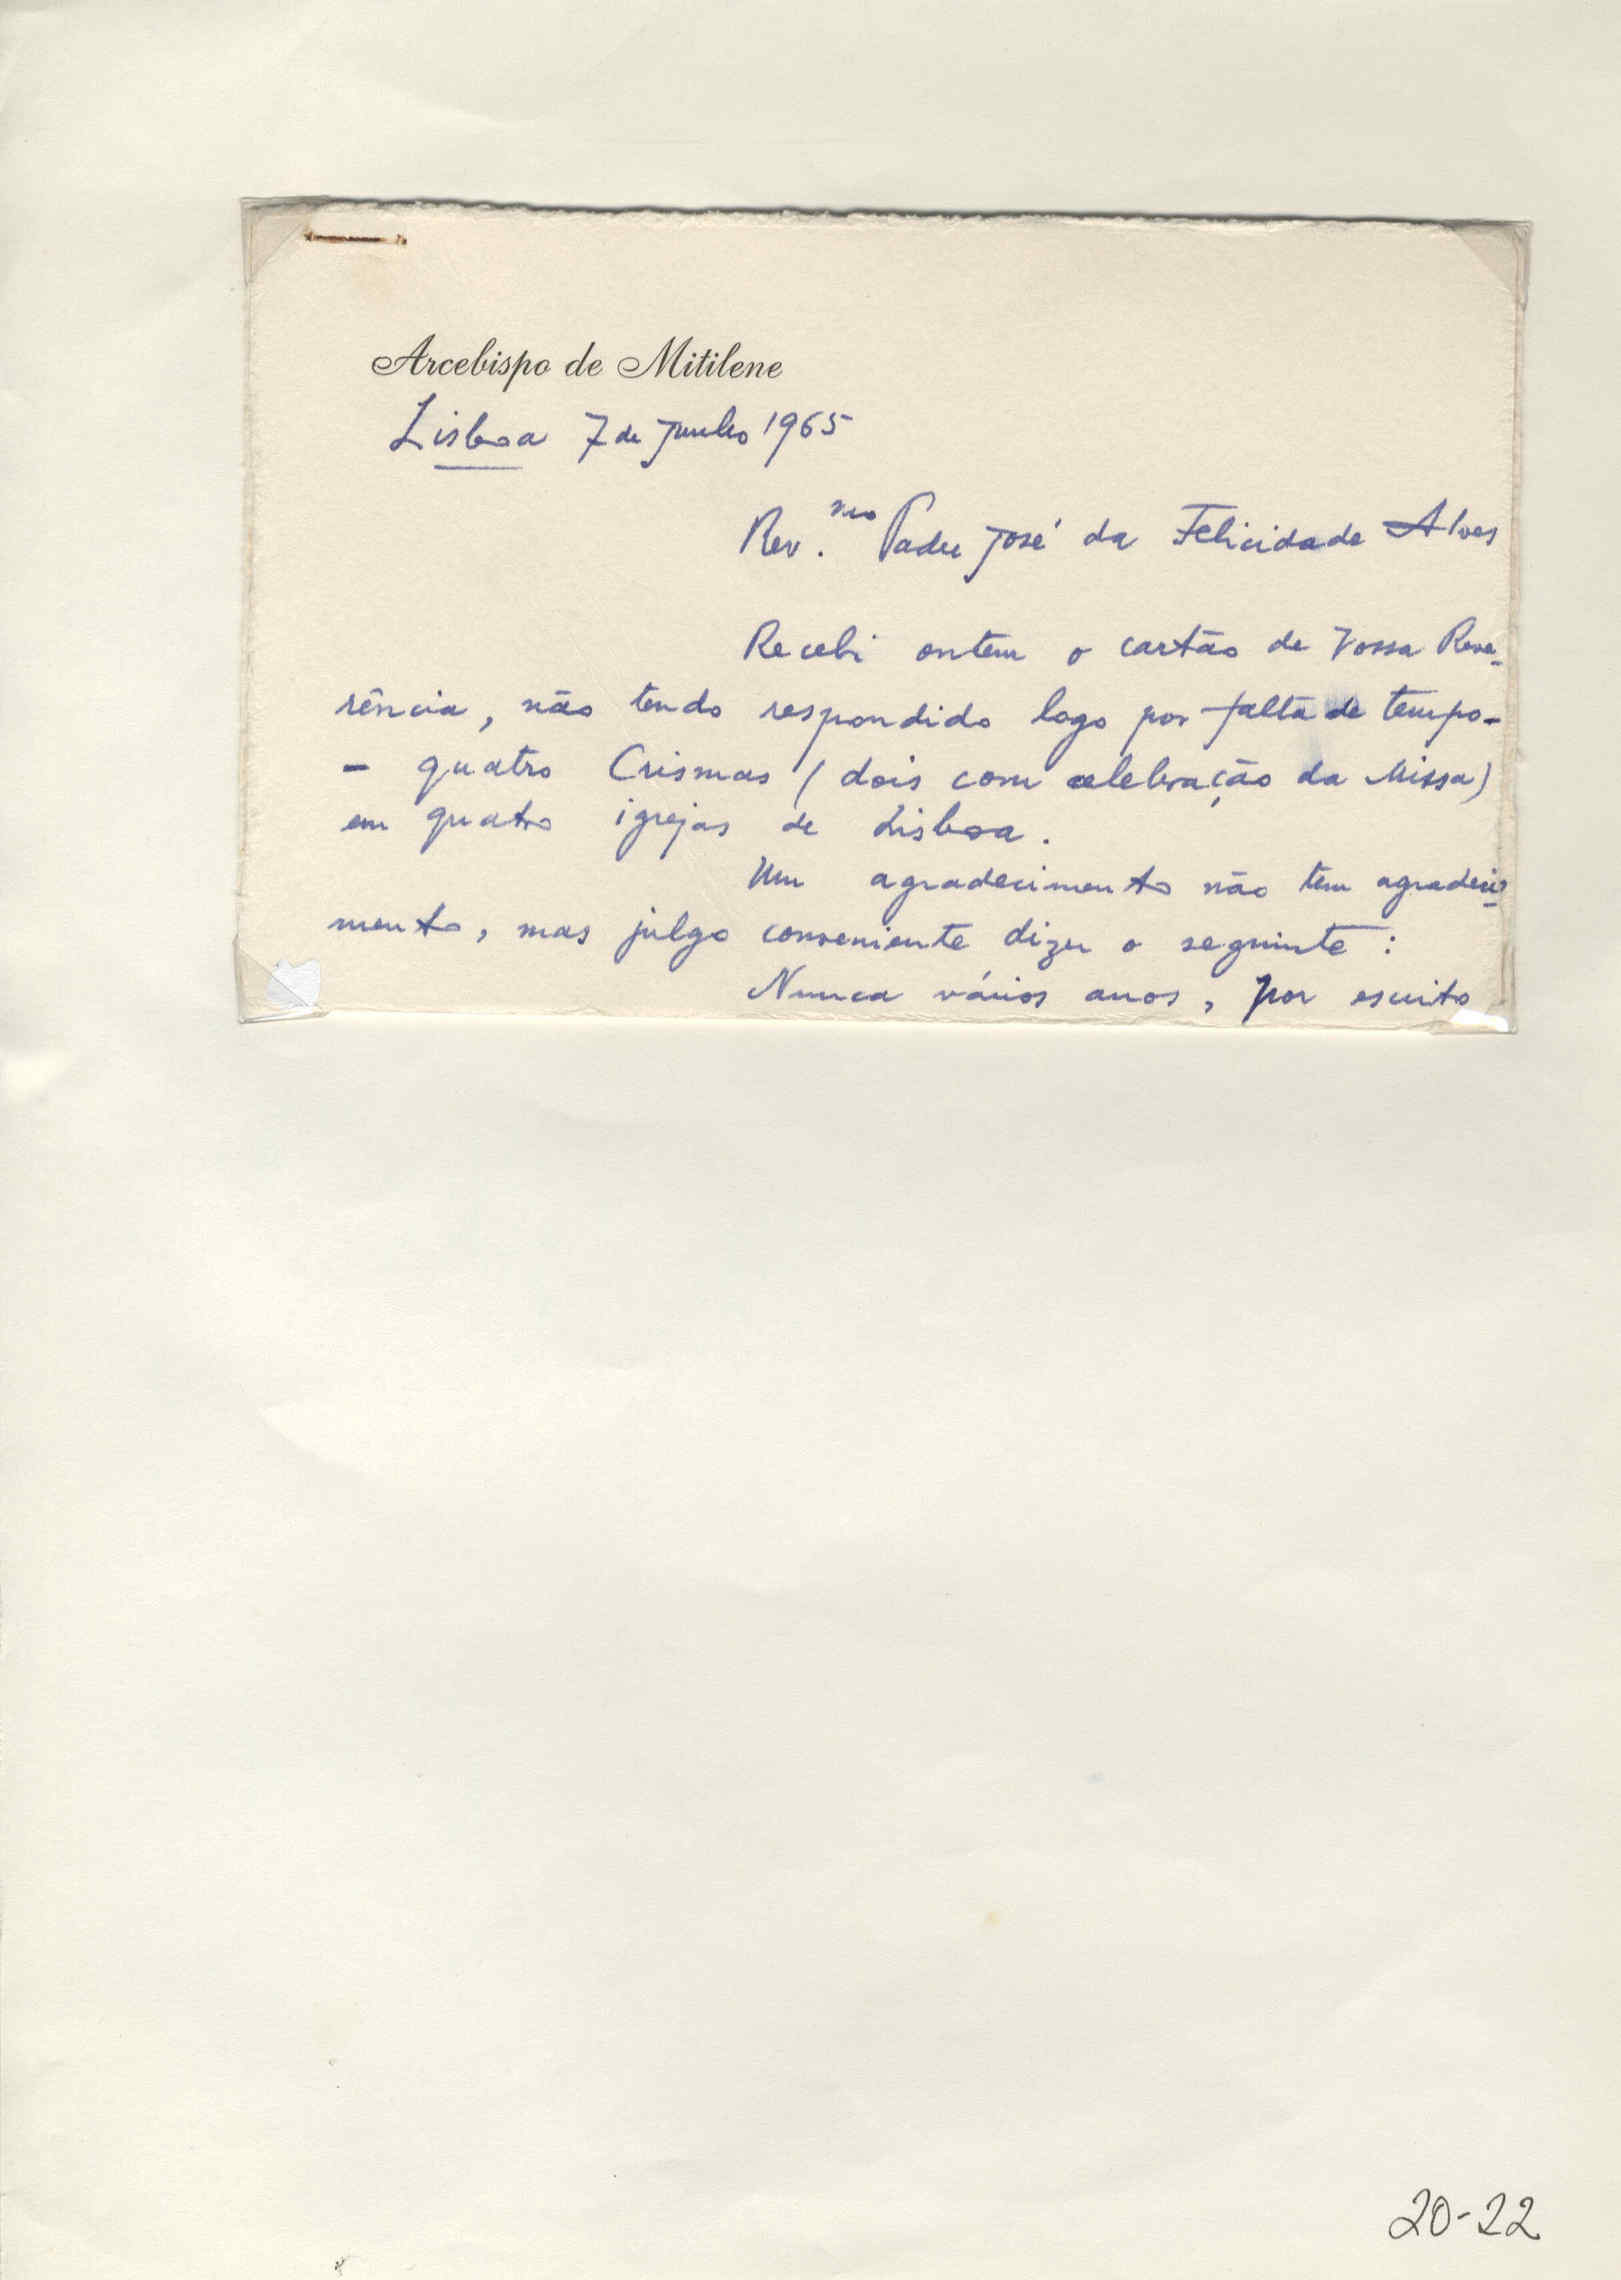 Arcebispo de Mitilene
Lisboa 7 de Junho 1965
Rev.mo Padre José da Felicidade Alves
Recebi ontem o cartão de Vossa Reve-
rência, não tendo respondido logo por falta de tempo -
- quatro Crismas (dois com celebração da Missa)
em quatro igrejas de Lisboa.
Um agradecimento não tem agradeci-
mento, mas julgo conveniente dizer o seguinte :
Nunca vários anos, por escrito
20-22